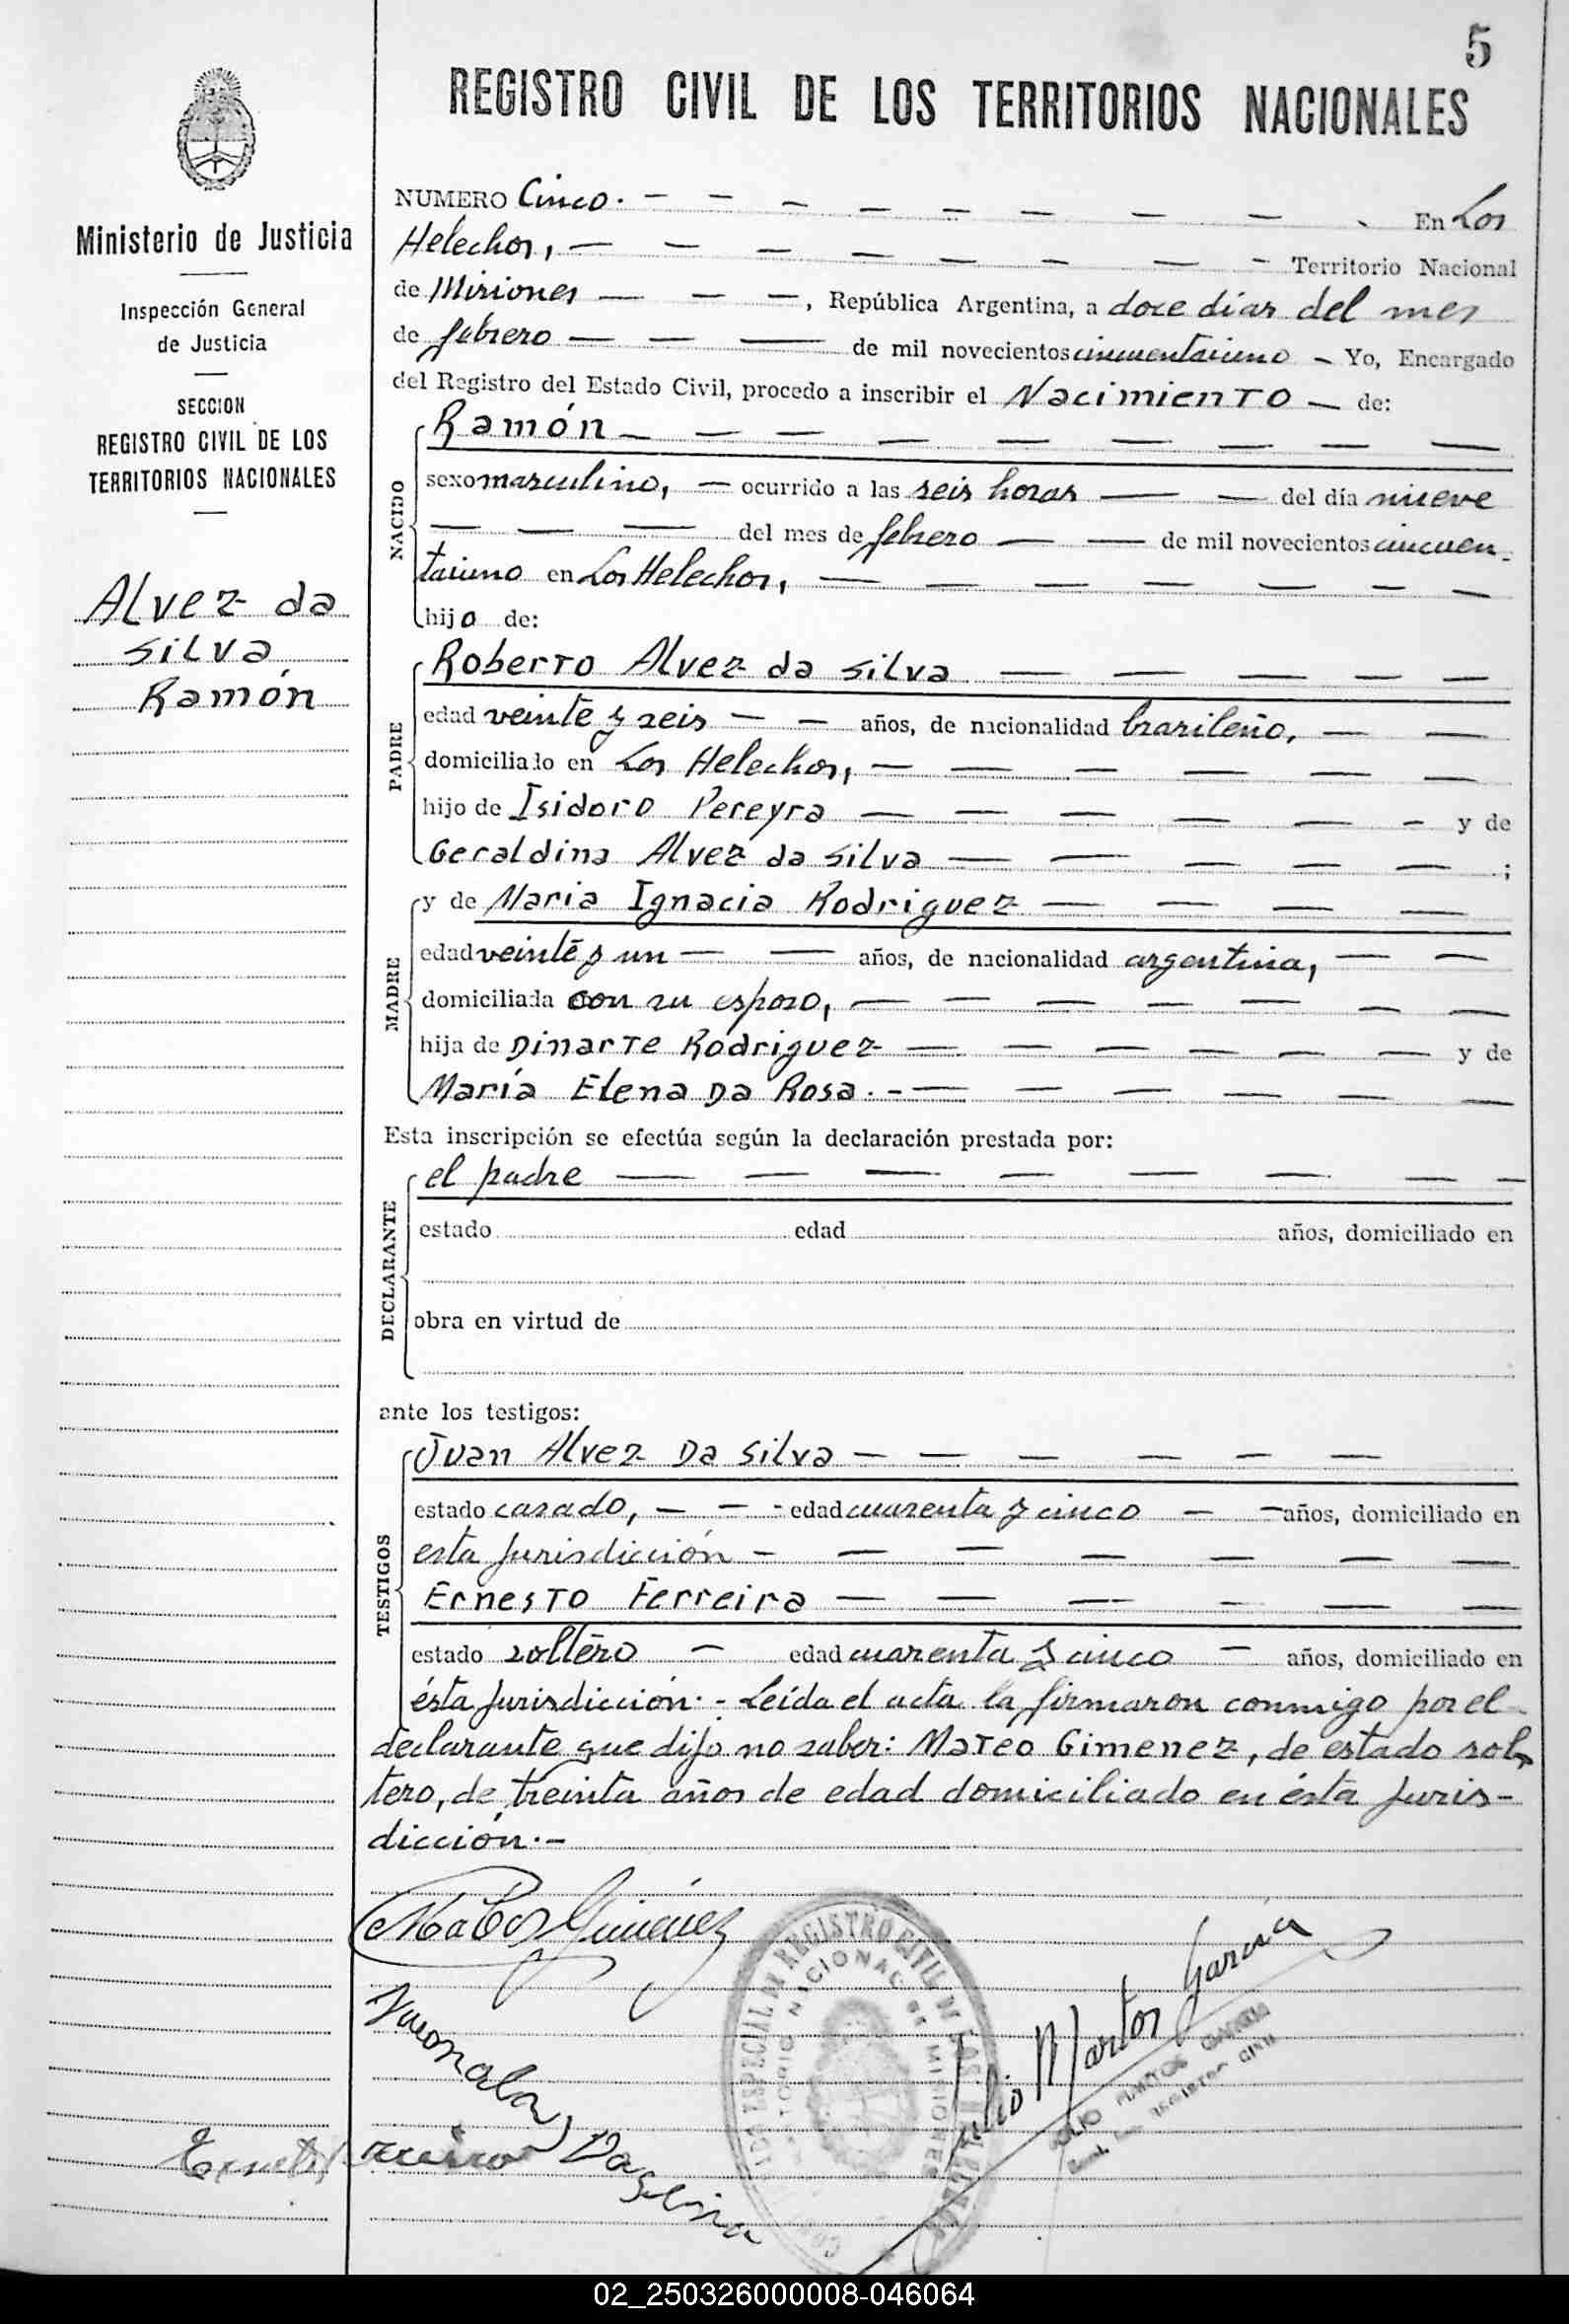 5
REGISTRO CIVIL DE LOS TERRITORIOS NACIONALES
Ministerio de Justicia
Inspección General
de Justicia
SECCION
REGISTRO CIVIL DE LOS
TERRITORIOS NACIONALES
Alvez da
Silva,
Ramón
NUMERO Cinco. - - - - - - - - En Los
Helechos, - - - - - - - - Territorio Nacional
de Misiones - - - , República Argentina, a doce días del mes
de febrero - - - de mil novecientos cincuentaiuno - Yo, Encargado
del Registro del Estado Civil, procedo a inscribir el Nacimiento - de:
NACIDO
Ramón - - - - - - - - -
sexo masculino, - ocurrido a las seis horas - - del día nueve
- - - del mes de febrero - - de mil novecientos cincuen-
taiuno en Los Helechos, - - - - - - -
hijo de:
PADRE
Roberto Alvez da Silva - - - - -
edad veinte y seis - - años, de nacionalidad brasileño, - -
domiciliado en Los Helechos, - - - - - -
hijo de Isidoro Pereyra - - - - - - y de
Geraldina Alvez da Silva - - - - - ;
MADRE
y de Maria Ignacia Rodriguez - - - -
edad veinte y un - - años, de nacionalidad argentina, - -
domiciliada con su esposo, - - - - - - -
hija de Dinarte Rodriguez - - - - - - y de
María Elena Da Rosa. - - - - - - -
Esta inscripción se efectúa según la declaración prestada por:
DECLARANTE
el padre - - - - - - - -
estado edad años, domiciliado en
obra en virtud de
ante los testigos:
TESTIGOS
Juan Alvez Da Silva - - - - - -
estado casado, - - - edad cuarenta y cinco - - años, domiciliado en
esta jurisdicción - - - - - - -
Ernesto Ferreira - - - - - -
estado soltero - edad cuarenta y cinco - años, domiciliado en
ésta jurisdicción. - Leída el acta la firmaron conmigo por el
declarante que dijo no saber: Mateo Gimenez, de estado sol-
tero, de treinta años de edad domiciliado en ésta juris-
dicción. -
Giménez
REGISTRO CIVIL DE
MISIONES
Julio Martos García
JULIO MARTOS GARCIA
REGISTRO CIVIL
Da Silva
02_250326000008-046064